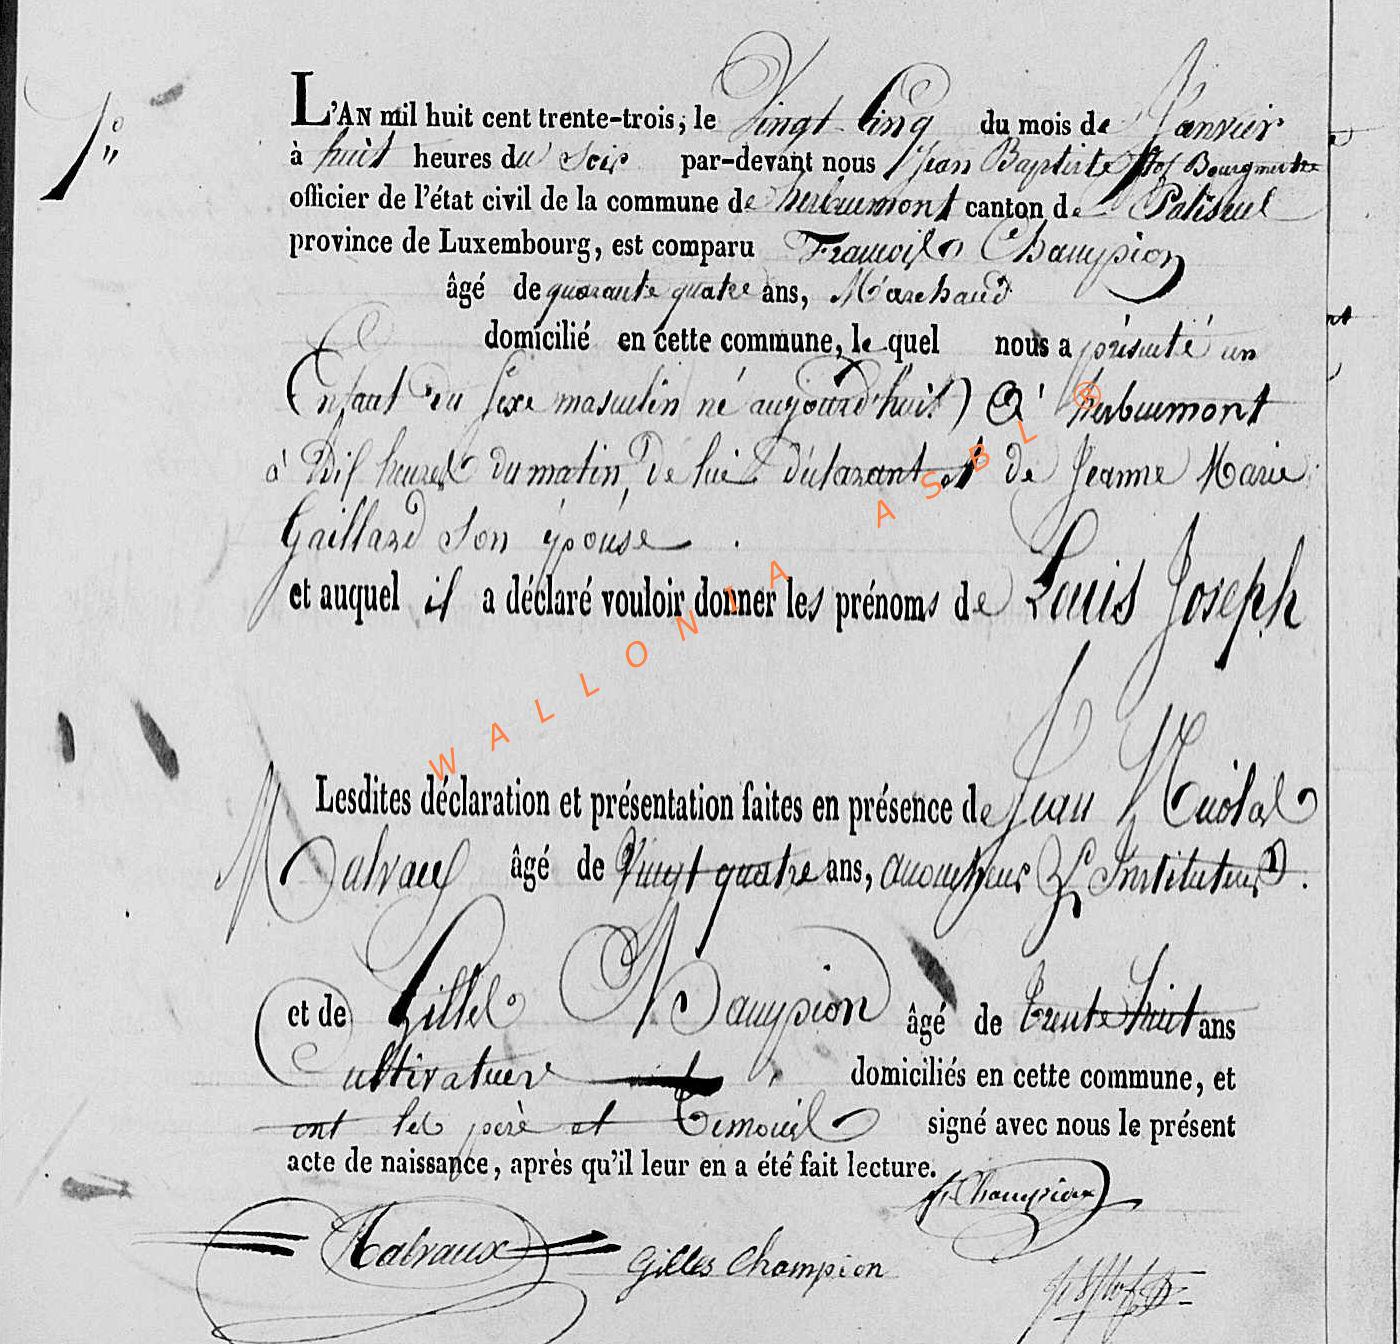 1°
L'AN mil huit cent trente-trois, le Vingt Cinq du mois de Janvier
à huit heures du Soir par-devant nous Jean Baptiste Bourgmestre
officier de l'état civil de la commune de herbeumont canton de Paliseul
province de Luxembourg, est comparu François Champion
âgé de quarante quatre ans, Marchand
domicilié en cette commune, le quel nous a présenté un
Enfant du sexe masculin né aujourd'huit à herbeumont
à dix heures du matin, de lui déclarant et de Jeanne Marie
Gaillard son épouse.
et auquel il a déclaré vouloir donner les prénoms de Louis Joseph
Lesdites déclaration et présentation faites en présence de Jean Nicolas
Malvaux âgé de Vingt quatre ans, Instituteur.
et de Gilles Champion âgé de trente huit ans
Cultivateur domiciliés en cette commune, et
ont les père et Temoins signé avec nous le présent
acte de naissance, après qu'il leur en a été fait lecture.
f. Champion
Malvaux Gilles Champion
WALLONIA ASBL ®